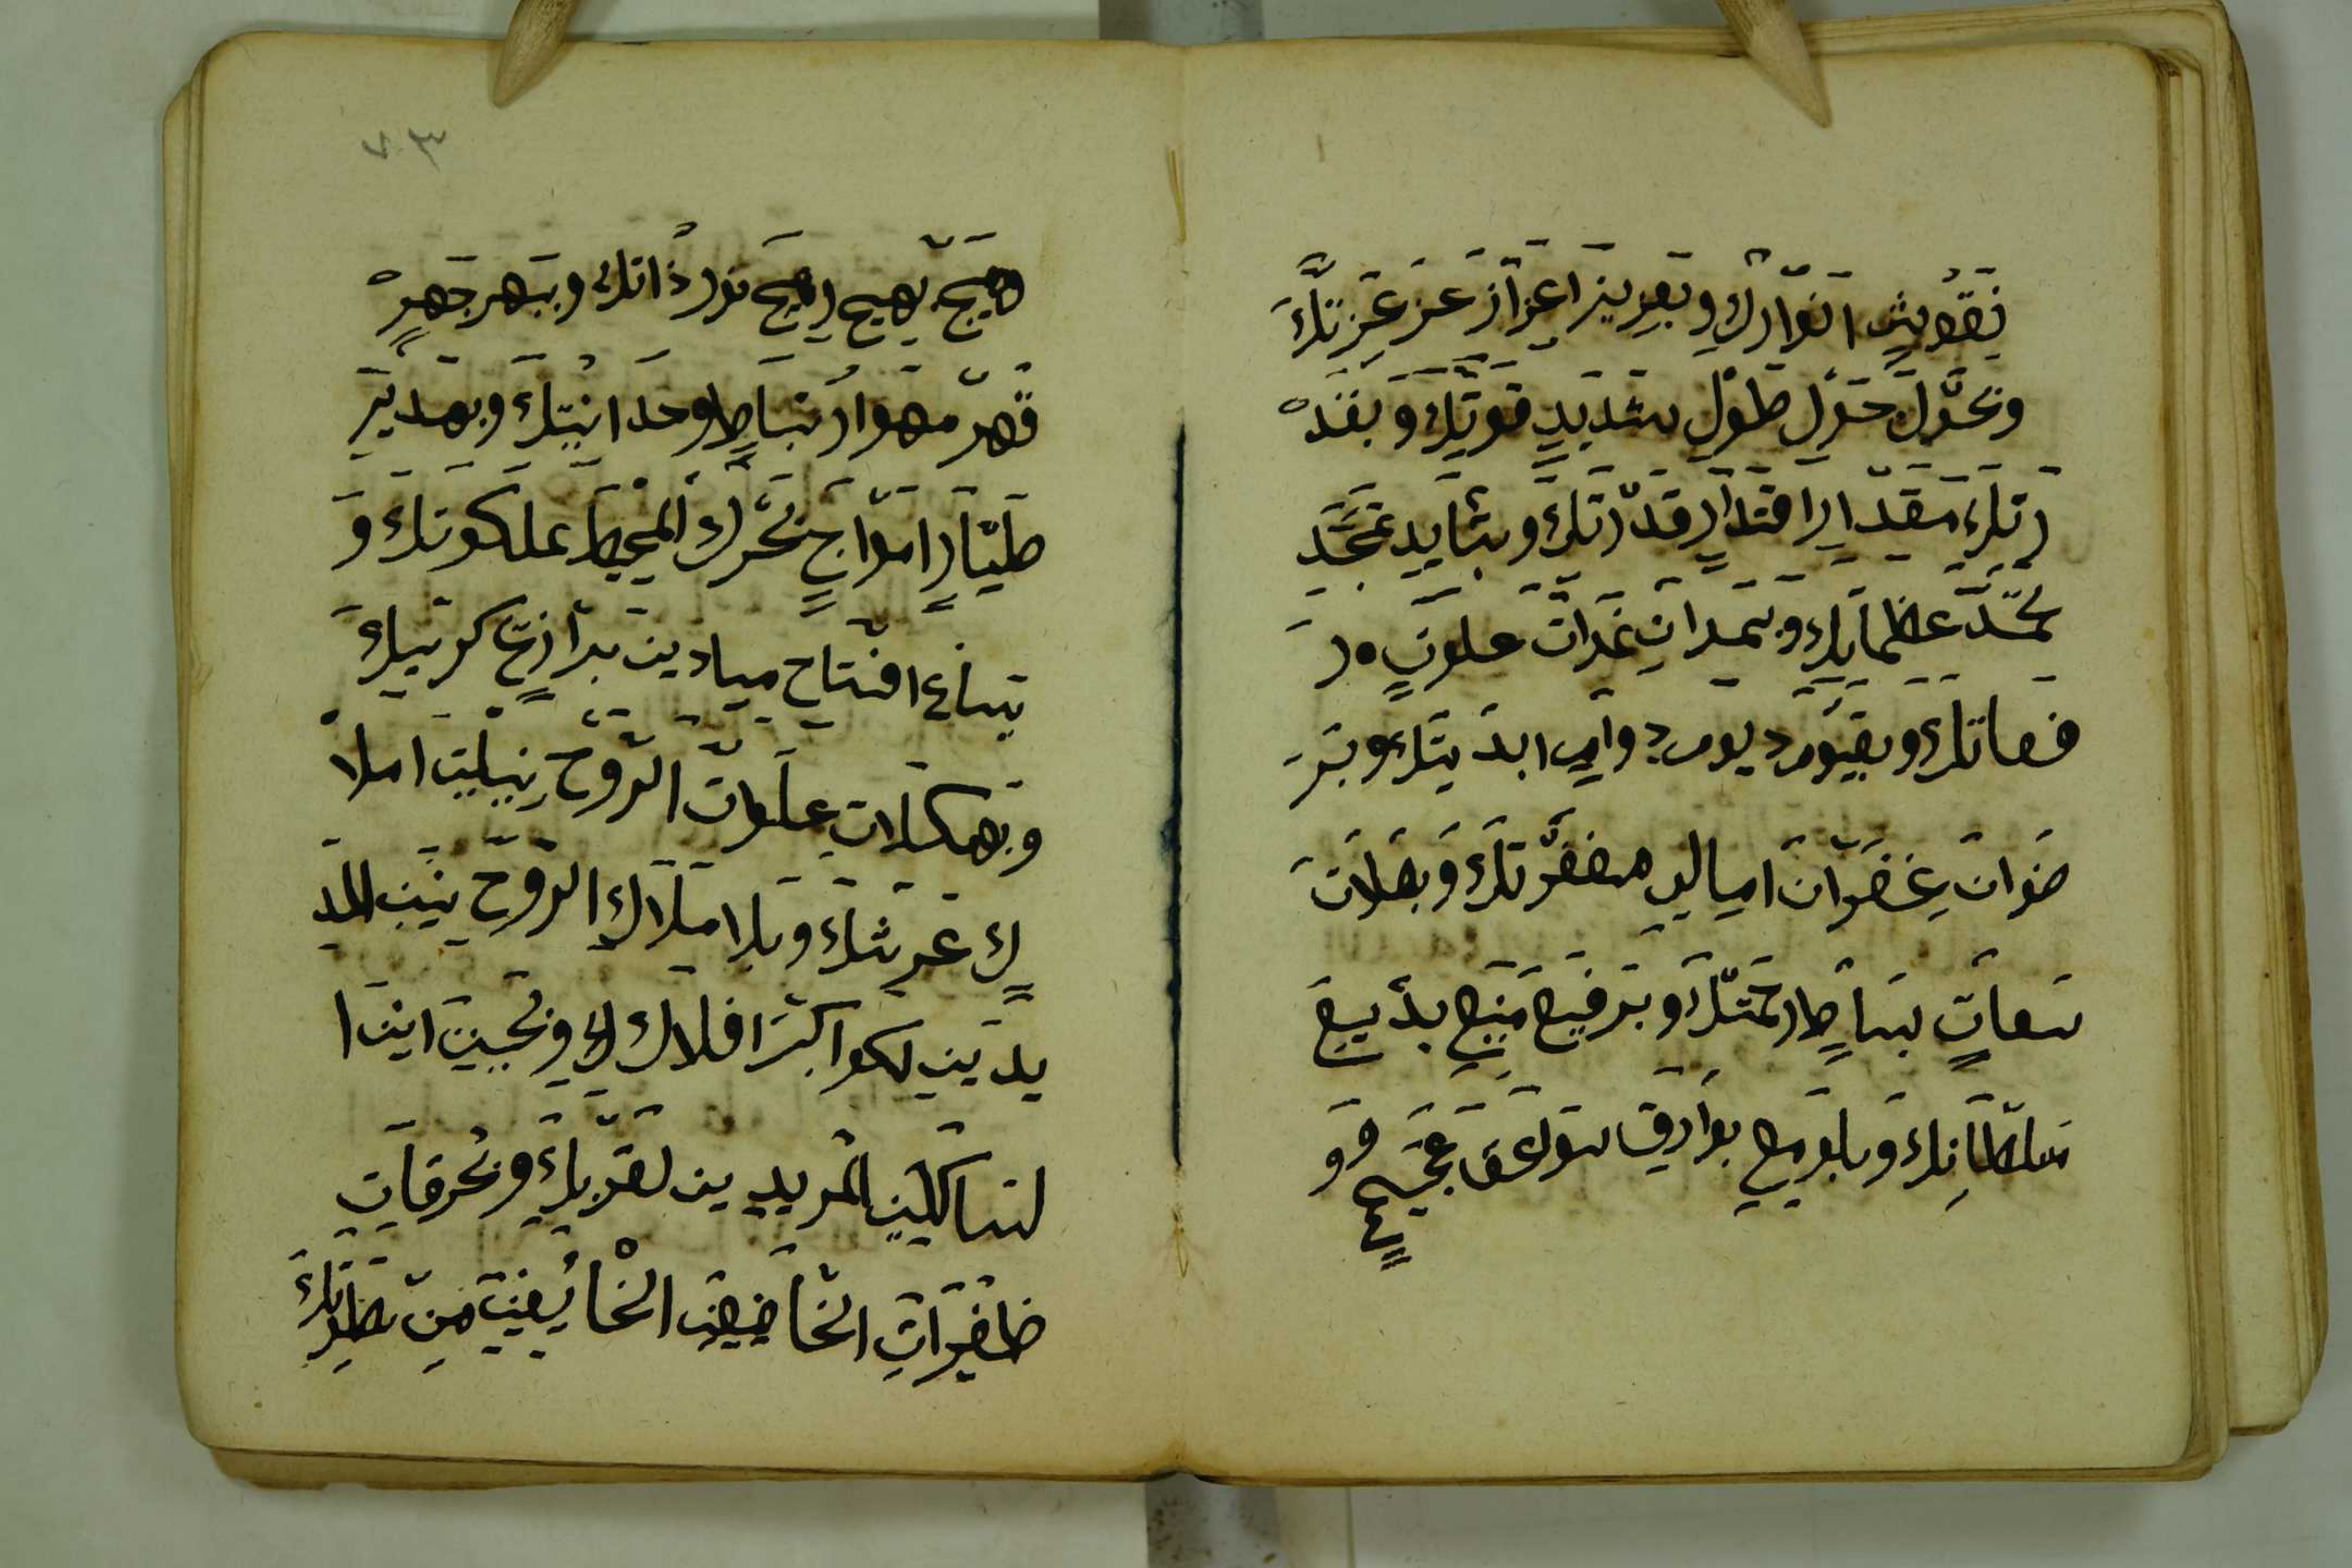 نقوش انوارك وبعزيز اعزاز عز عزتك
وبحول حول طول شديد قوتك وبقد
رتك مقدار اقتدار قدرتك وبتايد تمجد
تحمد عظمايك وبسمدان غمدات علون ر
فعاتك وبقيوم ديوم دوام ابديتك وبر
ضوان غضوان امالي مغفرتك وبصلات
سعات بساط رحمتك وبرفيع منيع بديع
سلطانك وبلوميع بوارق سواعق عجيج و
هيج يهيج رهيج نور ذاتك وببهر جهر
قهر مهوار نباط وحدانيتك وبهدير
طيار امواج بحرك المحيط بملكوتك و
تساع افتتاح ميادين برازخ كرسيك
وبهيكلات علوات الروح نيليت املا
ك عرشك وبلا ملاك الروح نين المد
يدين لكواكب افلاك ك وبحنين اينا
لتساكين المريدين لقربك وبحرقات
ظفيرات الخاضعين الخائفين من سطوتك